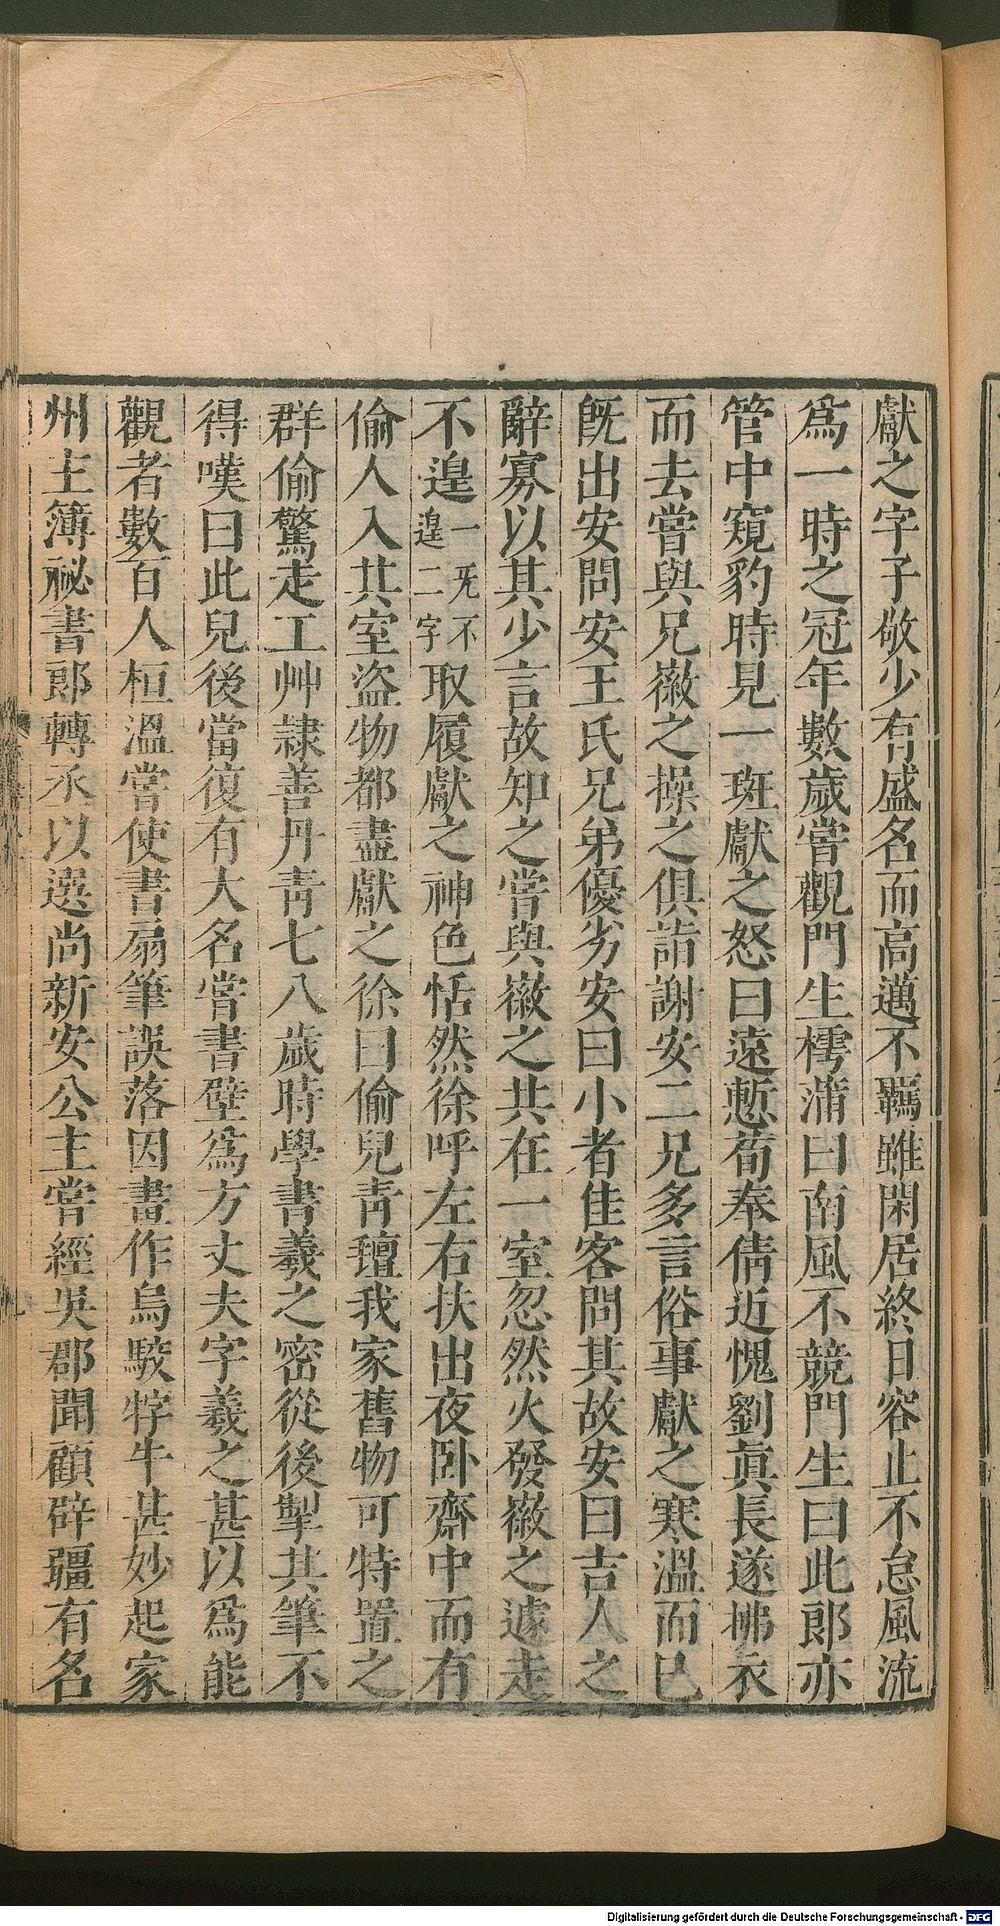 獻之字子敬少有盛名而高邁不羈雖閑居終日容止不怠風流
爲一時之冠年數歲嘗觀門生樗蒲曰南風不競門生曰此郎亦
管中窺豹時見一斑獻之怒曰遠慙荀奉倩近愧劉眞長遂拂衣
而去嘗與兄徽之操之俱詣謝安二兄多言俗事獻之寒溫而已
旣出安問安王氏兄弟優劣安曰小者佳客問其故安曰吉人之
辭寡以其少言故知之嘗與徽之共在一室忽然火發徽之遽走
不遑一旡不遑二字取履獻之神色恬然徐呼左右扶出夜卧齋中而有
偷人入其室盜物都盡獻之徐曰偷兒靑氊我家舊物可特置之
群偷驚走工艸隷善丹靑七八歲時學書羲之密從後掣其筆不
得嘆曰此兒後當復有大名嘗書壁爲方丈夫字羲之甚以爲能
觀者數百人桓溫嘗使書扇筆誤落因畫作烏駮牸牛甚妙起家
州主簿祕書郎轉丞以選尚新安公主嘗經吳郡聞顧辟疆有名
Digitalisierung gefördert durch die Deutsche Forschungsgemeinschaft - DFG